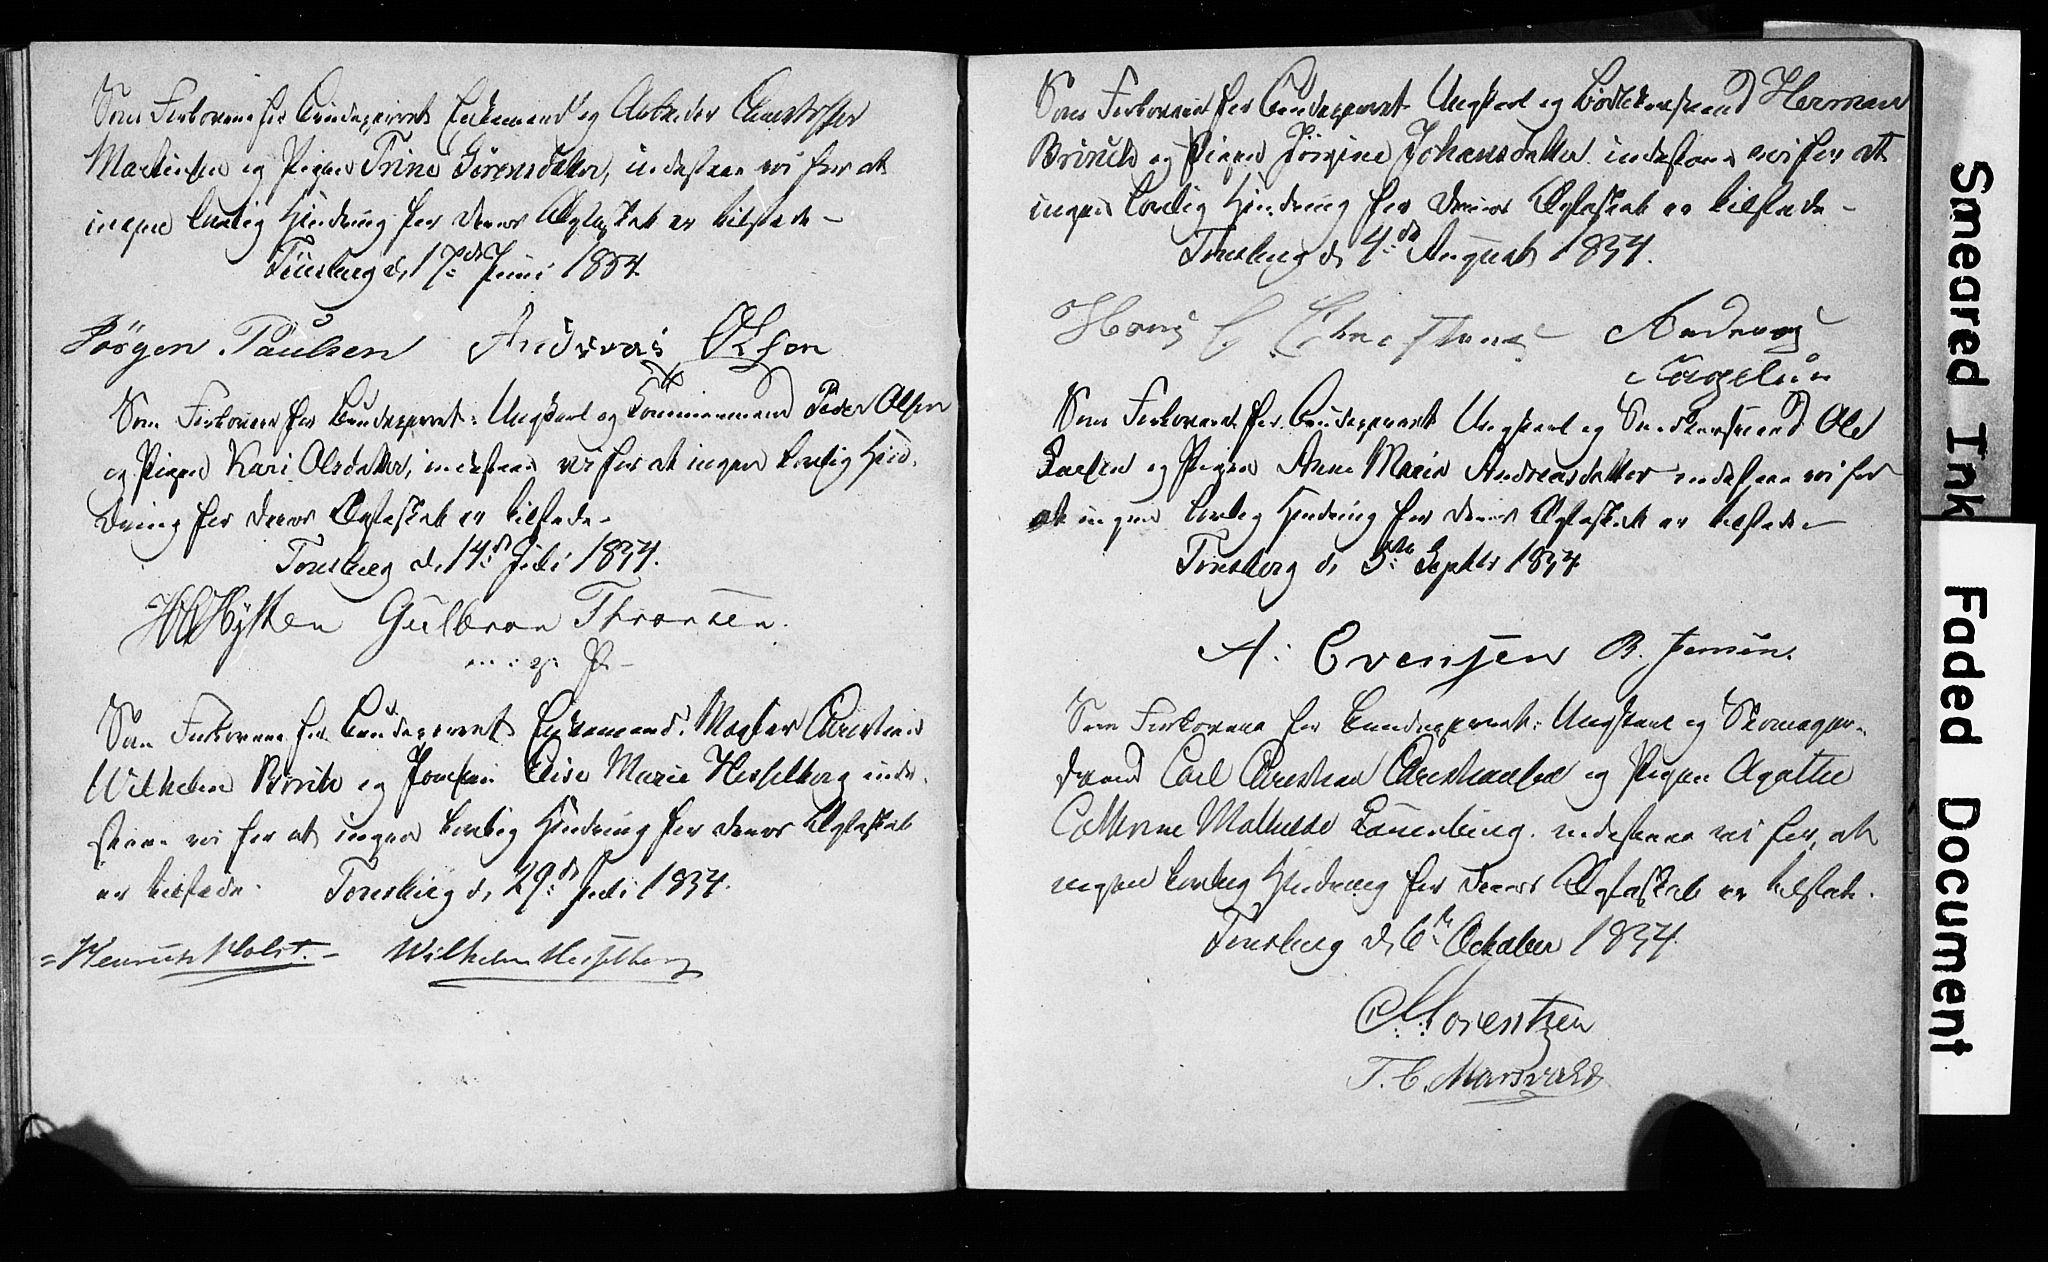 Som Forlovere for Brudeparret Enkemand og Arbeider Christoffer
Martinsen og Pigen Trine Sørensdatter, indestaae vi for at
ingen lovlig Hindring for deres Ægteskab er tilstede –
Tønsberg d. 17de Juni 1854.
Jörgen Paulsen Andreas Olsen
Som Forlovere for Brudeparret: Ungkarl og Tømmermand Peder Olsen
og Pigen Kari Olsdatter, indestaae vi for at ingen lovlig Hin-
dring for deres Ægteskab er tilstede –
Tønsberg d. 14de Juli 1854.
Gulbran Thronsen
m: p: P.
Som Forlovere for Brudeparret Enkemand, Christian
Wilhelm og Jomfru Elise Marie Hesselberg inde-
staae vi for at ingen lovlig Hindring for deres Ægteskab
er tilstede. Tønsberg d. 29de Juli 1854.
Henrich Holst. Wilhelm Hesselberg
Som Forlovere for Brudeparret Ungkarl og Bødkersvend Herman
og Pigen Jörgine Johansdatter indestaae vi for at
ingen lovlig Hindring for deres Ægteskab er tilstede –
Tønsberg d. 4de August 1854.
Hans Christensen Anderas
Som Forlovere for Brudeparret Ungkarl og Snedkersvend Ole
og Pigen Anne Marie Andreasdatter indestaae vi for
at ingen lovlig Hindring for deres Ægteskab er tilstede –
Tønsberg d. 5te Septbr 1854
A: Evensen B. Jensen.
Som Forlovere for Brudeparret: Ungkarl og Skomager-
svend Carl Christian Christiansen og Pigen Agathe
Cathrine Mathilde indestaae vi for, at
ingen lovlig Hindring for deres Ægteskab er tilstede.
Tønsberg d. 6te October 1854.
Lorentzen
T. C. Marsvald
Smeared Ink
Faded Document